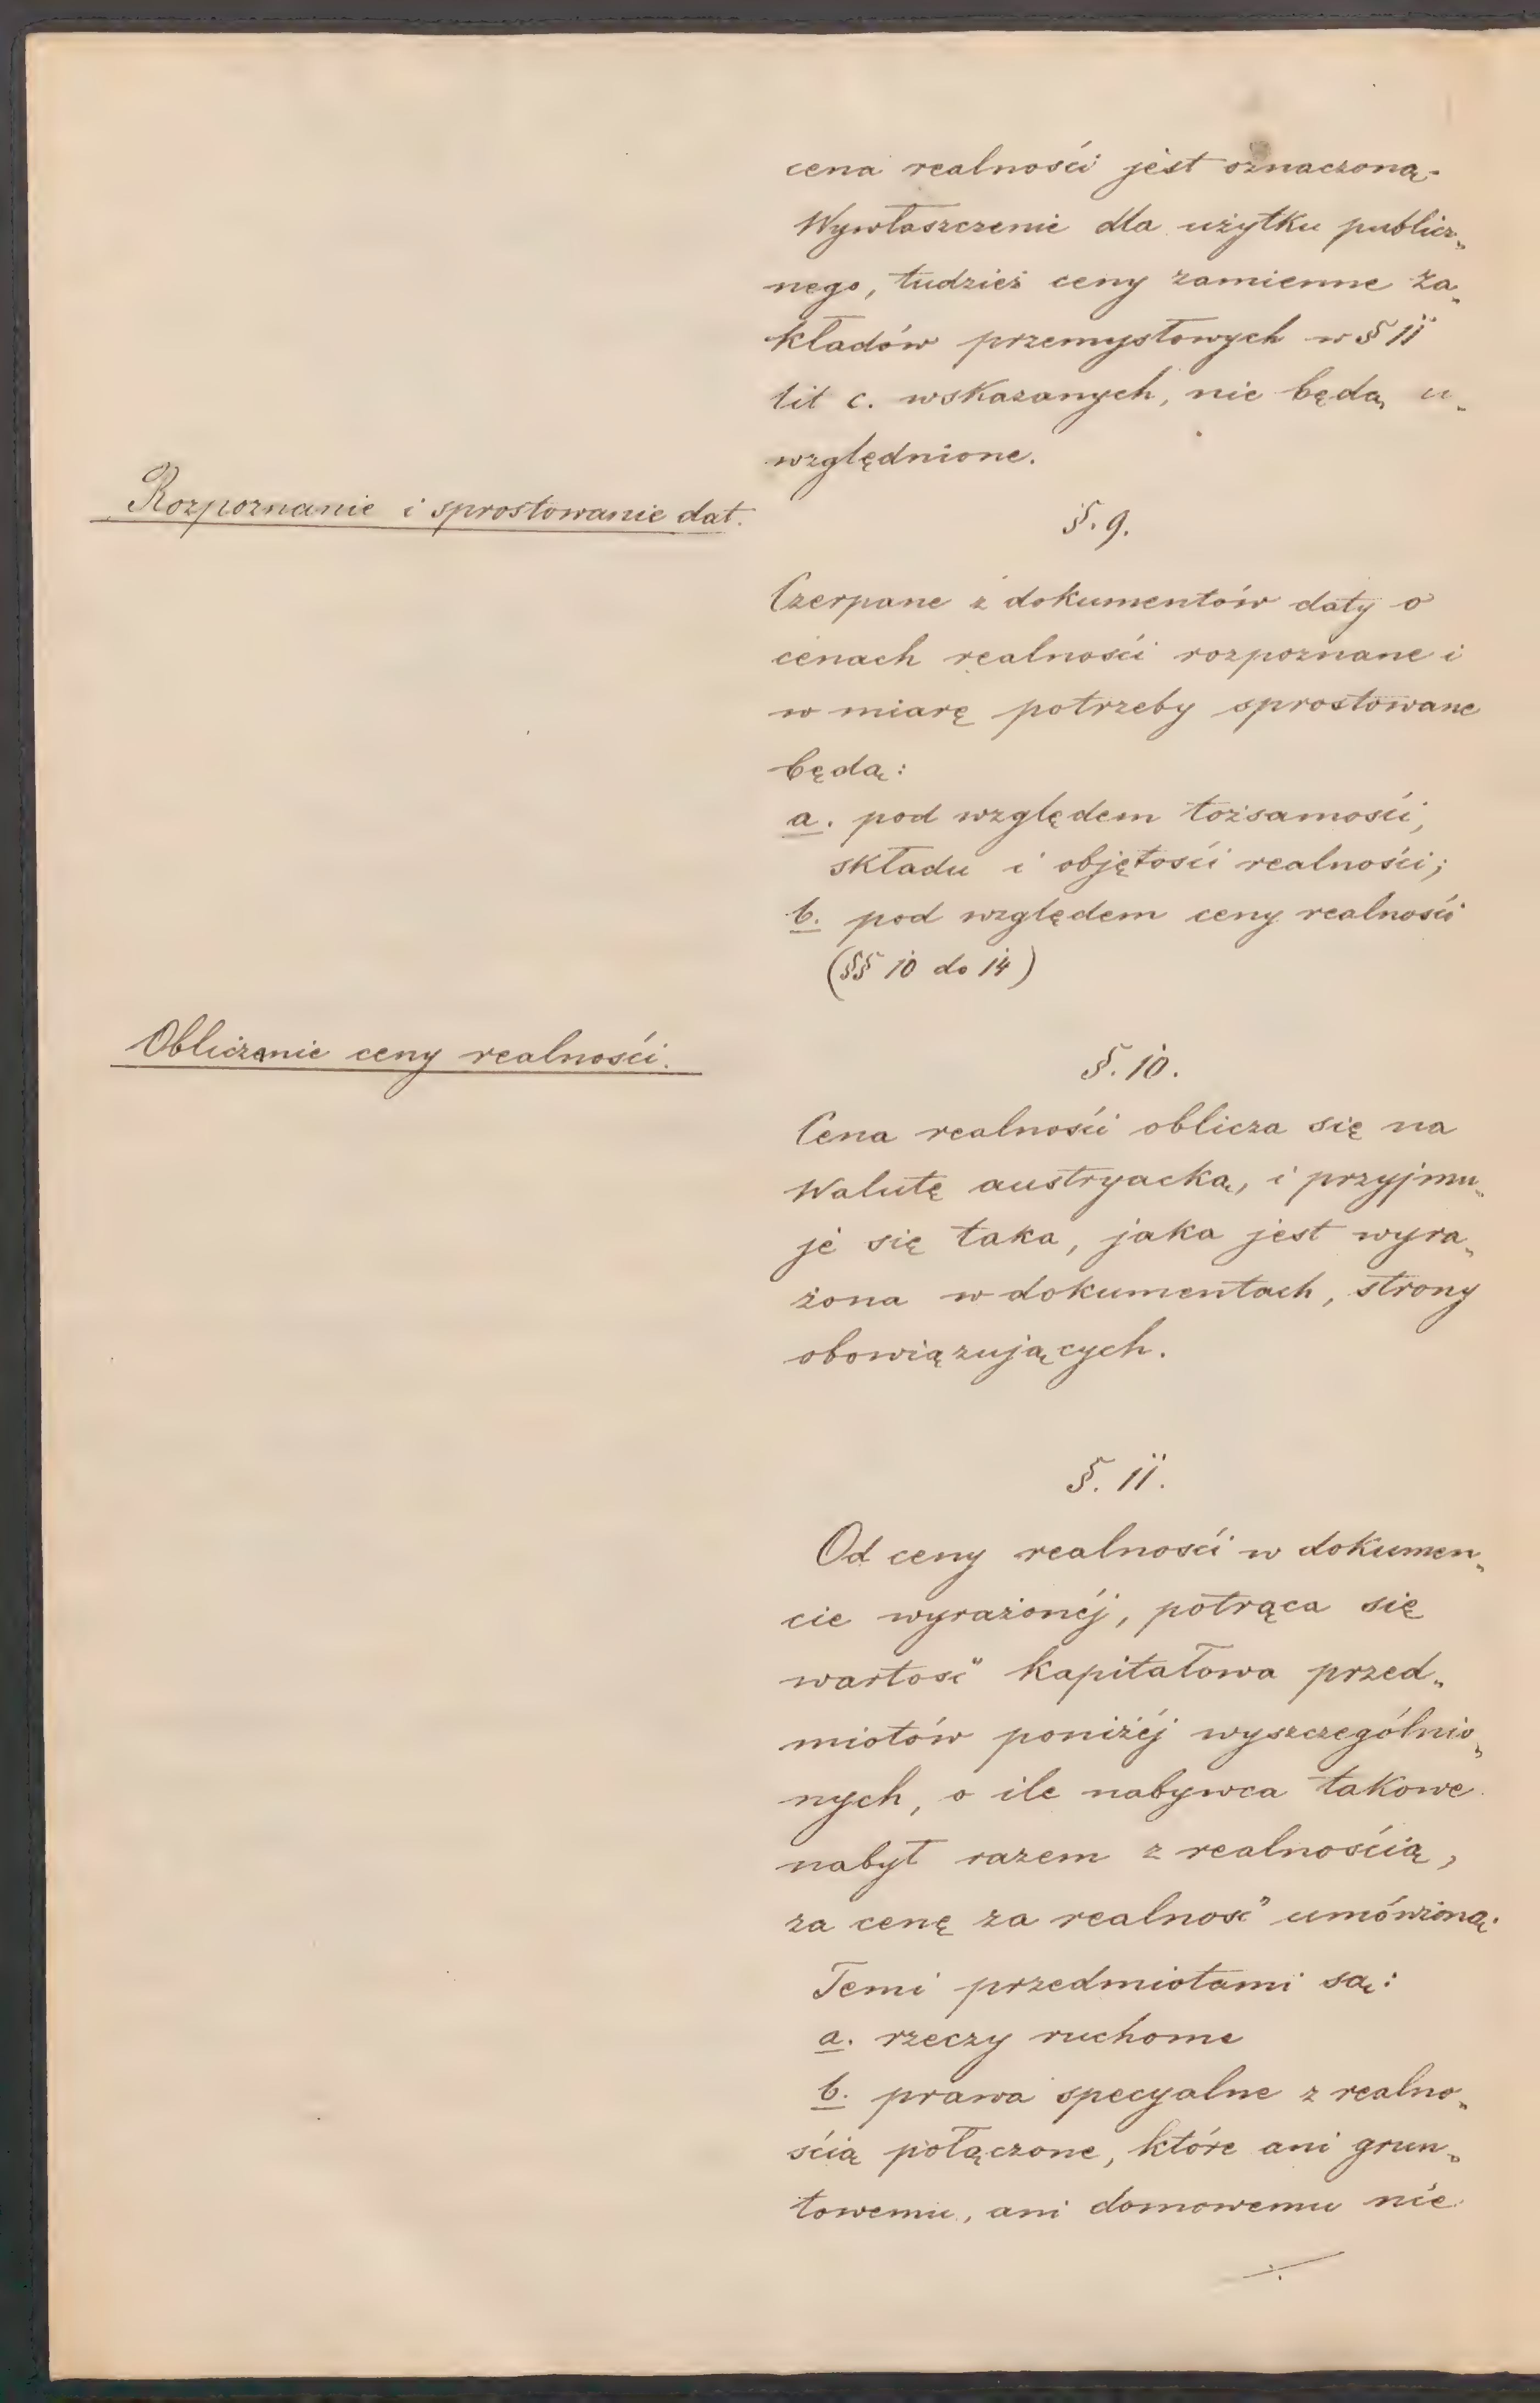 cena realności jest oznaczoną.
Wywłaszczenie dla użytku publicz„
nego, tudzież ceny zamienne za„
kładów przemysłowych w § 11
lit c. wskazanych, nie będą u„
względnione.
Rozpoznanie i sprostowanie dat.
§. 9.
Czerpane z dokumentów daty o
cenach realności rozpoznane i
w miarę potrzeby sprostowane
będą:
a. pod względem tożsamości,
składu i objętości realności;
b. pod względem ceny realności
(§§ 10 do 14)
Obliczanie ceny realności.
§. 10.
Cena realności oblicza się na
Walutę austryacką, i przyjmu„
je się taka, jaka jest wyra„
żona w dokumentach, strony
obowiązujących.
§. 11.
Od ceny realności w dokumen„
cie wyrażonéj, potrąca się
wartość kapitałowa przed„
miotów poniżéj wyszczególnio„
nych, o ile nabywca takowe
nabył razem z realnością,
za cenę za realność umówioną.
Temi przedmiotami są:
a. rzeczy ruchome
b. prawa specyalne z realno„
ścią połączone, które ani grun„
towemu, ani domowemu nie
./.